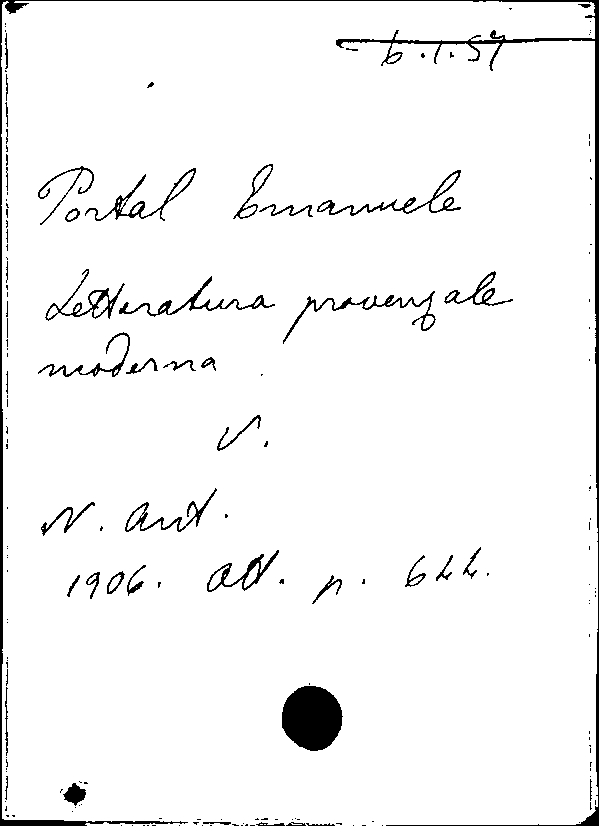 6.1.57
Portal Emanuele
Letteratura provenzale
moderna
V.
N. Ant.
1906. Ott. p. 622.